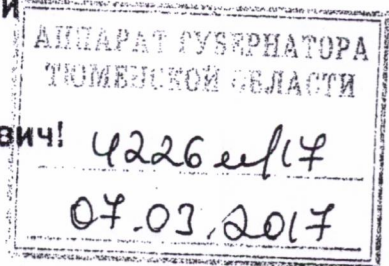 и
АППАРАТ ГУБЕРНАТОРА
ТЮМЕНСКОЙ ОБЛАСТИ
вич!
4226 м/17
07.03.2017